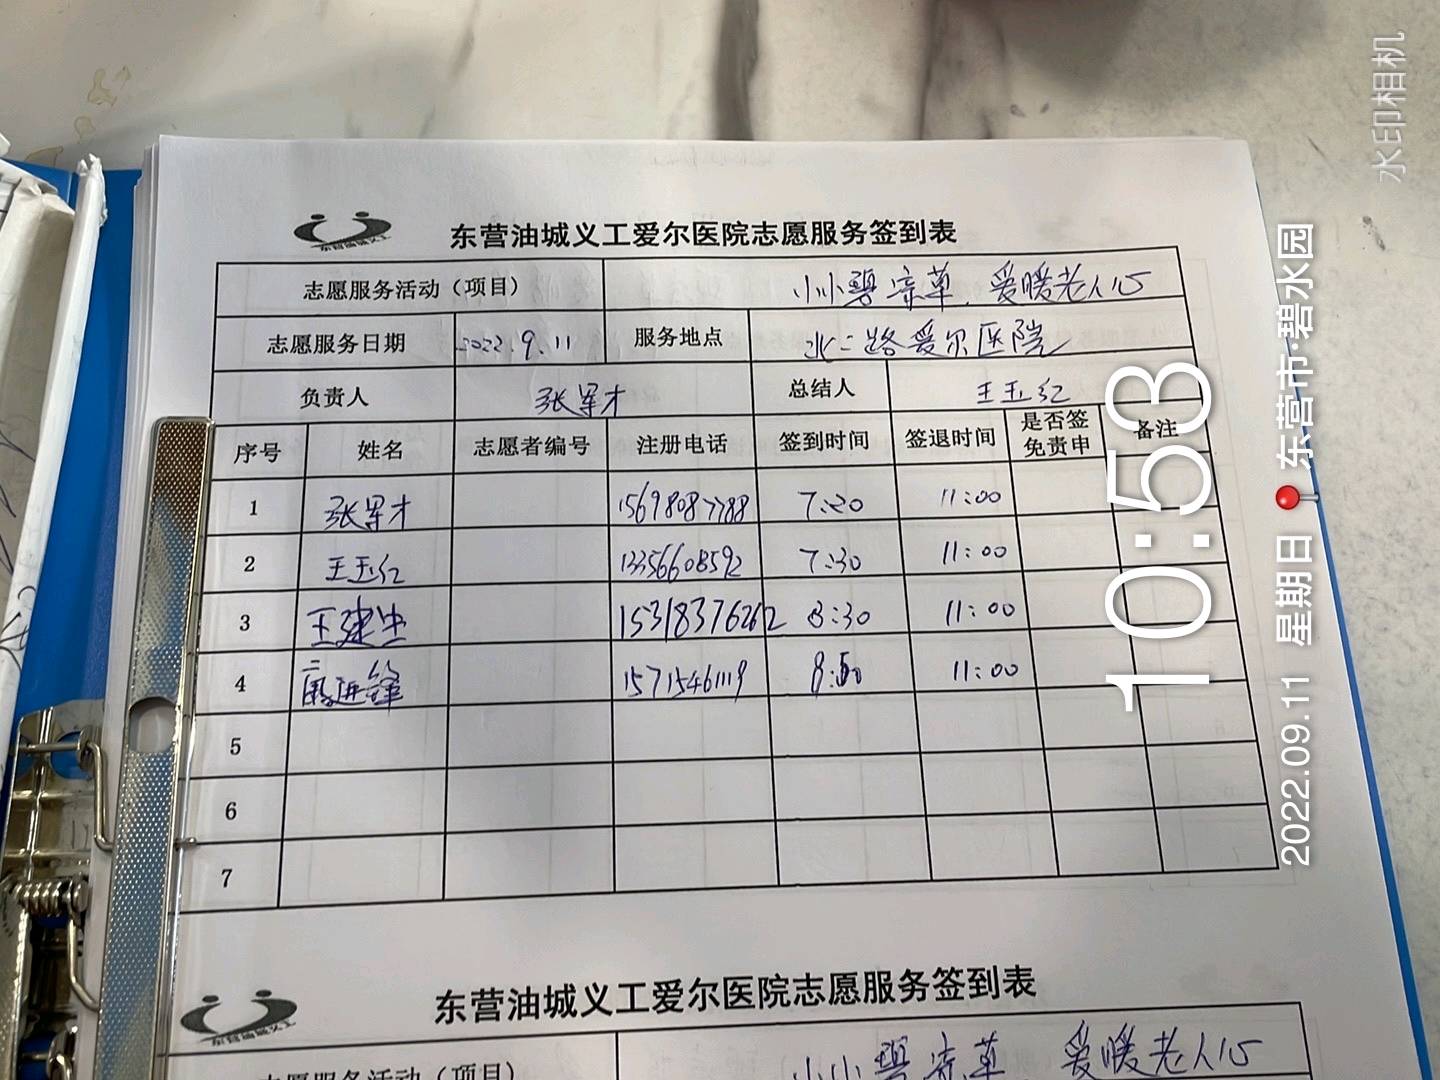 东营油城义工爱尔医院志愿服务签到表
志愿服务活动（项目） 小小碧凉草、爱暖老人心
志愿服务日期 2022.9.11 服务地点 北二路爱尔医院
负责人 张军才 总结人 王玉红
序号 姓名 志愿者编号 注册电话 签到时间 签退时间 是否签免责申 备注
1 张军才 15698087788 7:20 11:00
2 王玉红 13356608592 7:30 11:00
3 王建忠 15318376262 8:30 11:00
4 进锋 15715461119 11:00
5
6
7
东营油城义工爱尔医院志愿服务签到表
志愿服务活动（项目） 小小碧凉草 爱暖老人心
水印相机
10:53
2022.09.11 星期日 东营市·碧水园